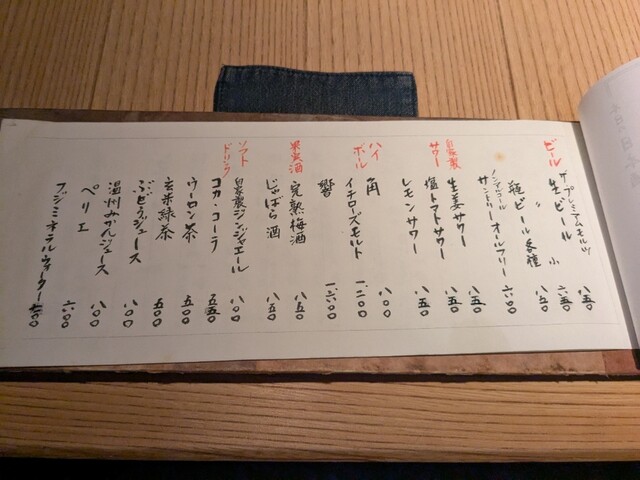 ビール
ザ・プレミアムモルツ
生ビール 八五〇
〃 小 六五〇
瓶ビール各種 八五〇
ノンアルコール
サントリーオールフリー 六〇〇
自家製
サワー
生姜サワー 八五〇
塩トマトサワー 八五〇
レモンサワー 八五〇
ハイ
ボール
角 八〇〇
イチローズモルト 一、二〇〇
響 一、六〇〇
果実酒
完熟梅酒 八五〇
じゃばら酒 八五〇
ソフト
ドリンク
自家製ジンジャエール 八〇〇
コカ・コーラ 五五〇
ウーロン茶 五〇〇
玄米緑茶 五〇〇
ぶどうジュース 八〇〇
温州みかんジュース 八〇〇
ペリエ 六〇〇
フジミネラルウォーター